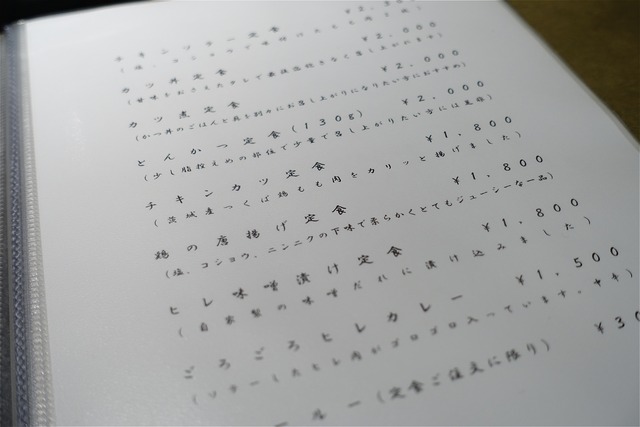 チキンソテー定食
カツ丼定食 ¥2,000
(甘味をおさえたタレで最後迄飽きなく召し上がれます)
カツ煮定食 ¥2,000
(かつ丼のごはんと具を別々にお召し上がりになりたい方におすすめ)
とんかつ定食(130g) ¥2,000
(少し脂控えめの部位で少量で召し上がりたい方には是非)
チキンカツ定食 ¥1,800
(茨城産つくば鶏もも肉をカリッと揚げました)
鶏の唐揚げ定食 ¥1,800
(塩、コショウ、ニンニクの下味で柔らかくとてもジューシーな一品)
ヒレ味噌漬け定食 ¥1,800
(自家製の味噌だれに漬け込みました)
ごろごろヒレカレー ¥1,500
(ソテーしたヒレ肉がゴロゴロ入っています。
ー(定食ご注文に限り) ¥30